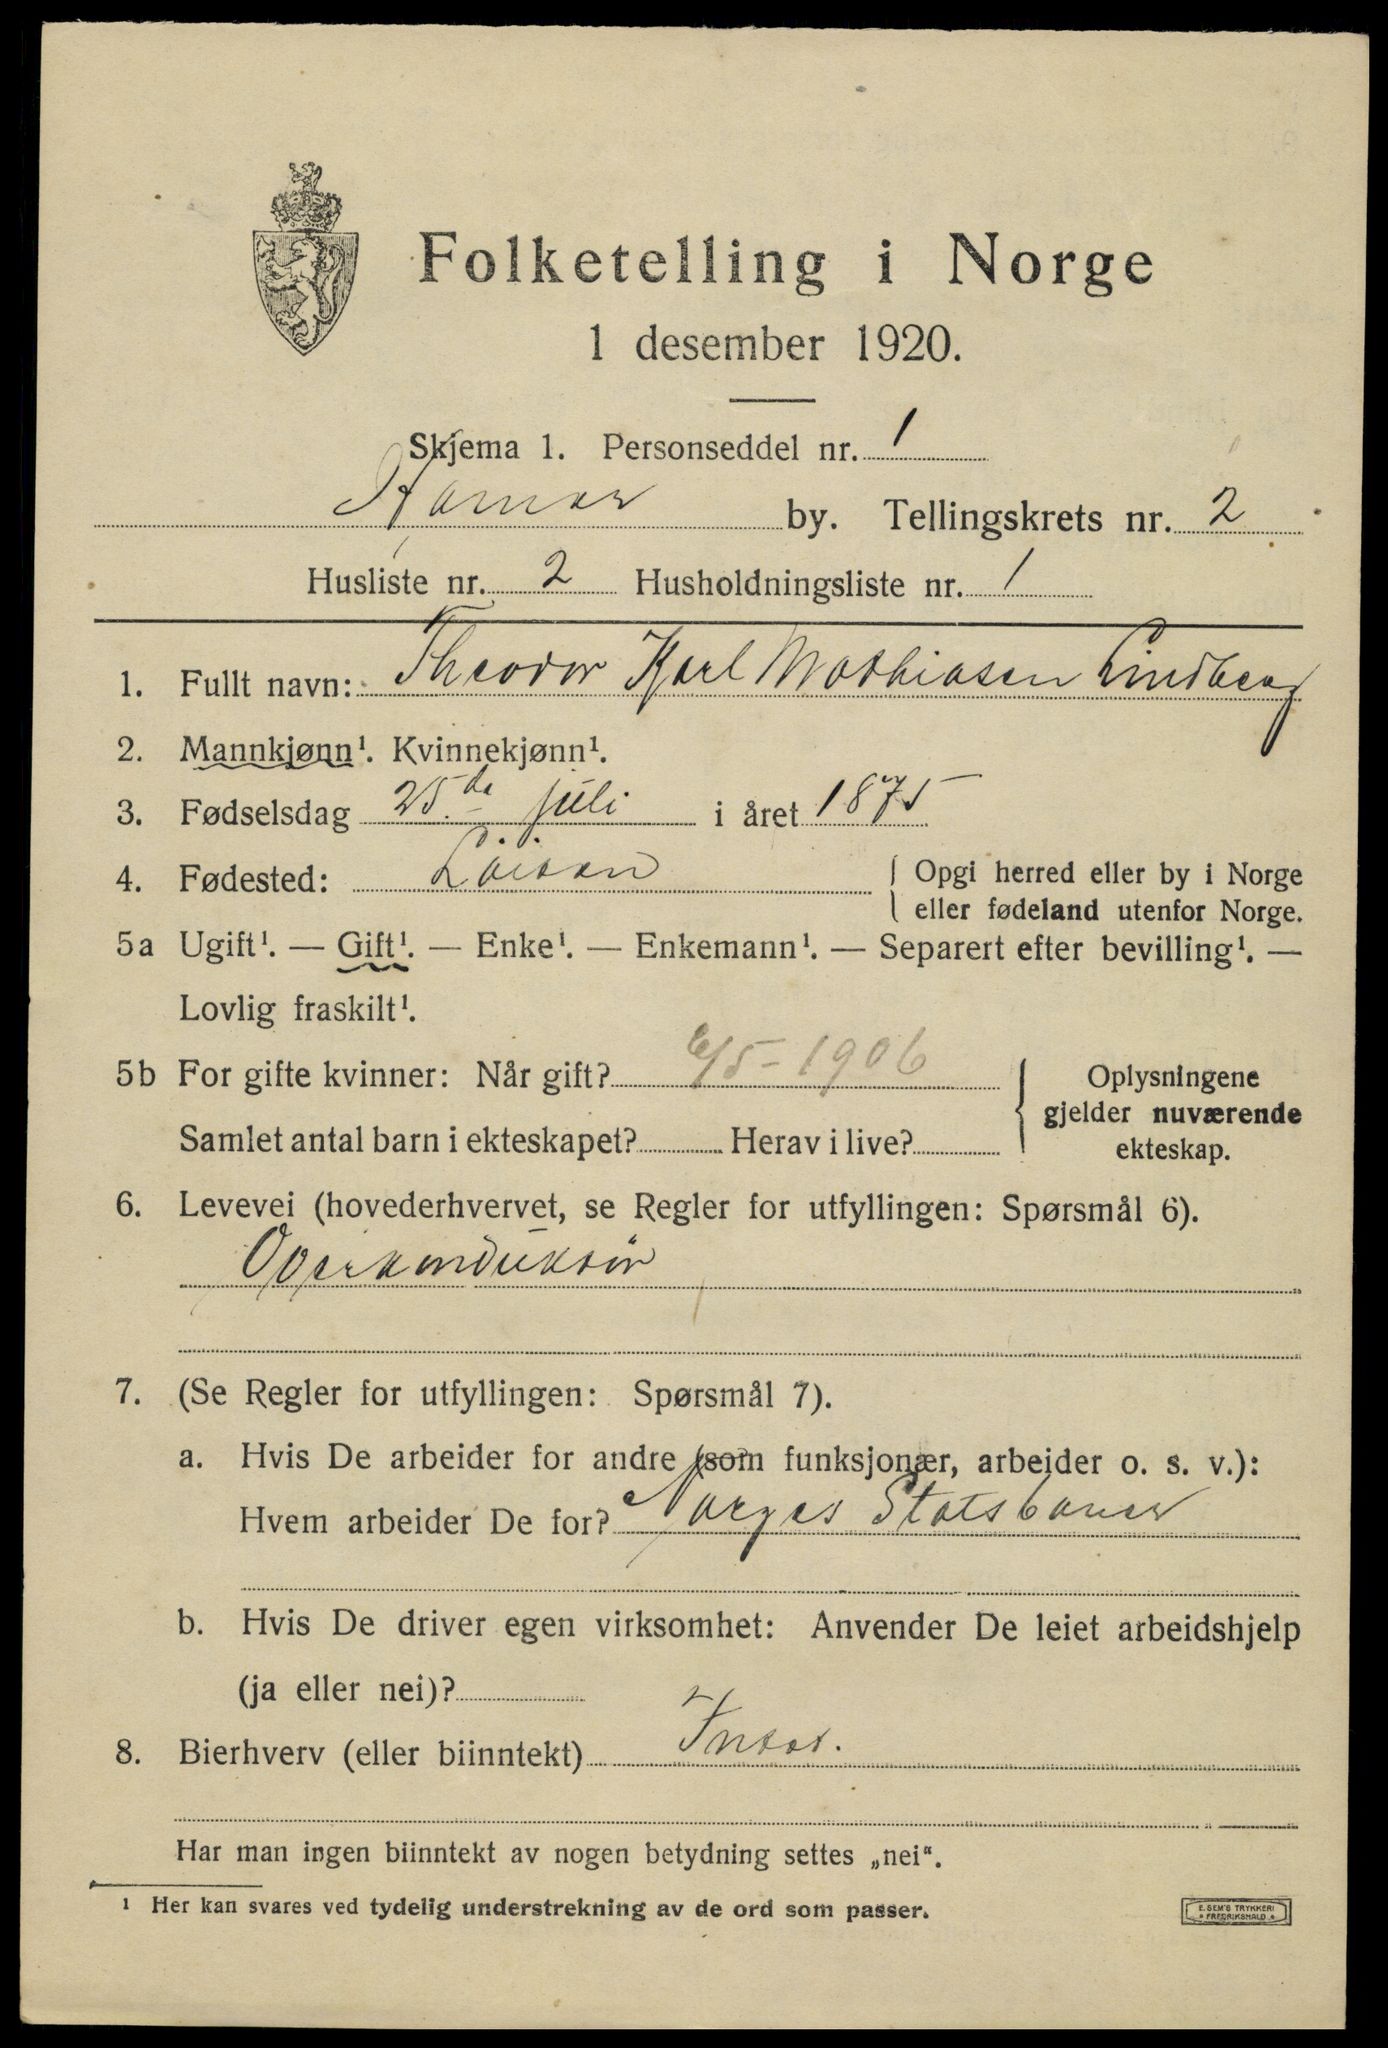 Folketelling i Norge
1 desember 1920.
Skjema 1. Personseddel nr. 1
Hamar by. Tellingskrets nr. 2
Husliste nr. 2 Husholdningsliste nr. 1
1. Fullt navn: Theodor Karl Mathiasen Lindberg
2. Mannkjønn¹. Kvinnekjønn¹.
3. Fødselsdag 25de juli i året 1875
4. Fødested: Löiten { Opgi herred eller by i Norge
eller fødeland utenfor Norge.
5a Ugift¹. — Gift¹. — Enke¹. — Enkemann¹. — Separert efter bevilling¹. —
Lovlig fraskilt¹.
5b For gifte kvinner: Når gift? 6/5-1906 { Oplysningene
gjelder nuværende
Samlet antal barn i ekteskapet? Herav i live?
ekteskap.
6. Levevei (hovederhvervet, se Regler for utfyllingen: Spørsmål 6).
Overkonduktör
7. (Se Regler for utfyllingen: Spørsmål 7).
a. Hvis De arbeider for andre (som funksjonær, arbeider o. s. v.):
Hvem arbeider De for? Norges Statsbaner
b. Hvis De driver egen virksomhet: Anvender De leiet arbeidshjelp
(ja eller nei)?
8. Bierhverv (eller biinntekt) Intet.
Har man ingen biinntekt av nogen betydning settes „nei“.
¹ Her kan svares ved tydelig understrekning av de ord som passer.
E. SEM'S TRYKKERI
FREDRIKSHALD